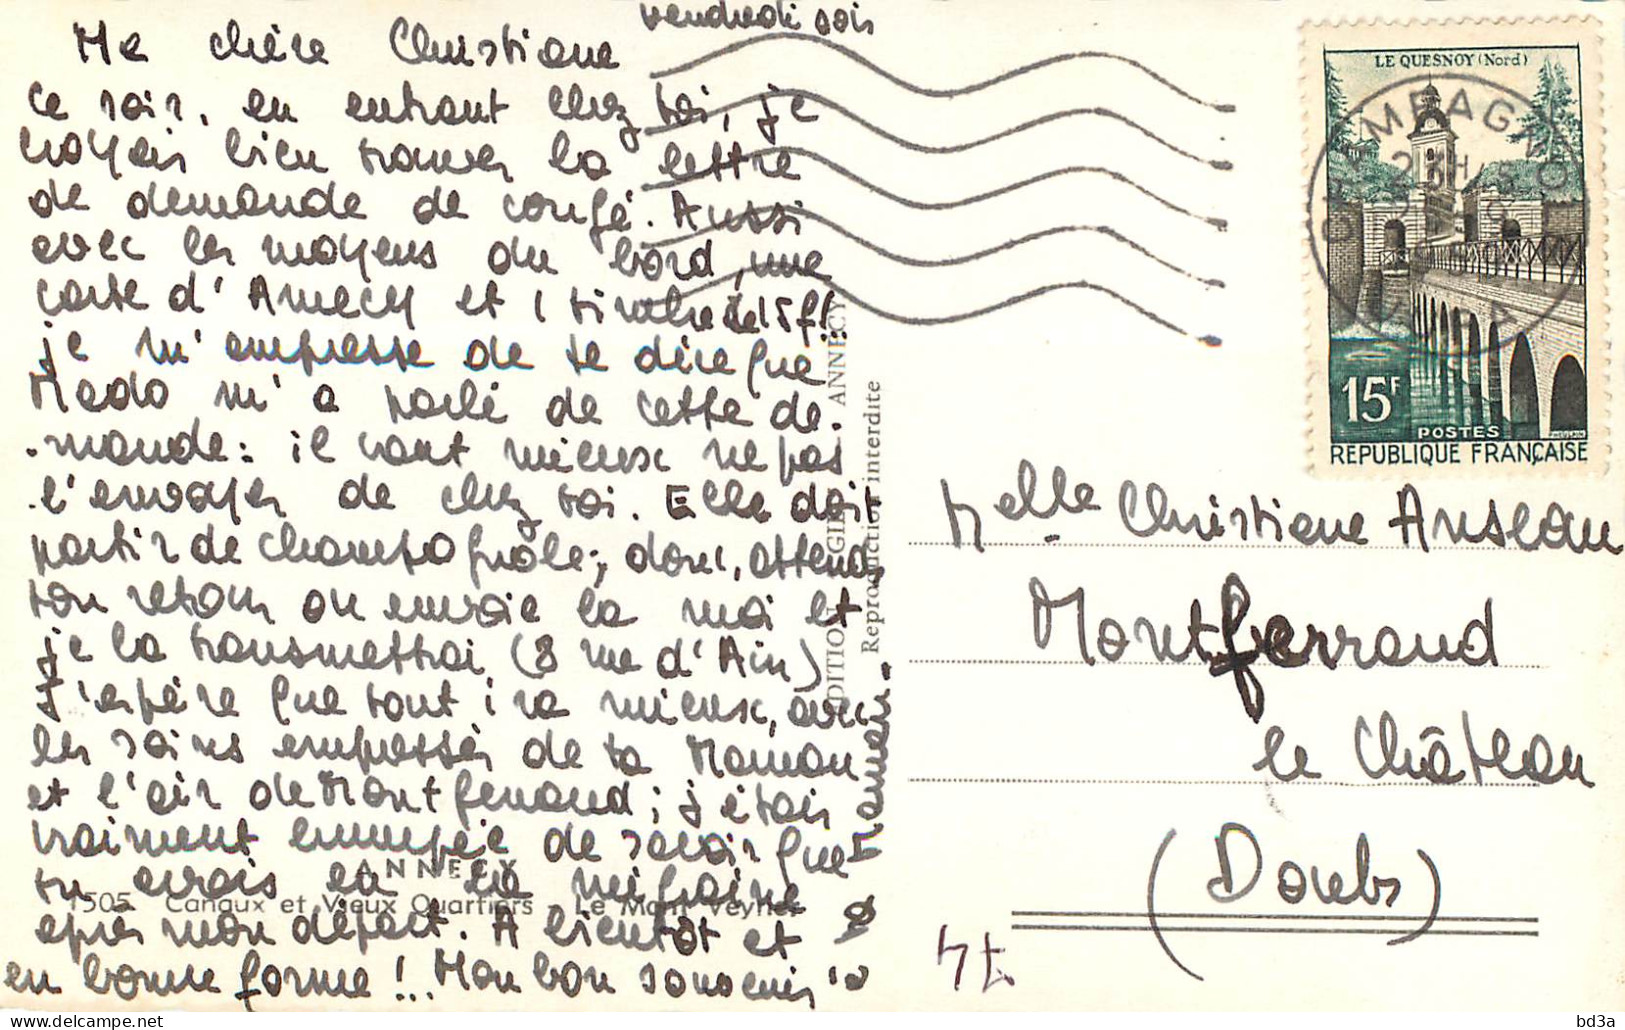 vendredi soir
Ma chère Christiane
Ce soir, en entrant chez toi, je
croyais bien trouver la lettre
de demande de congé. Aussi
avec les moyens du bord, une
carte d'Annecy et 1 timbre de 15f!..
je m'empresse de te dire que
Mado m'a parlé de cette de-
-mande: il vaut mieux ne pas
l'envoyer de chez toi. Elle doit
partir de Champagnole; donc, attends
ton retour ou envoie la moi et
je la transmettrai (8 rue d'Ain)
J'espère que tout ira mieux, avec
les soins empressés de ta Maman
et l'air de Montferrand; j'étais
vraiment ennuyée de savoir que
tu avais eu la migraine
après mon départ. A bientôt et
en bonne forme!.. Mon bon souvenir
à ta maman
EDITION GIL ANNECY
Reproduction interdite
ANNECY
1505 Canaux et Vieux Quartiers - Le Mont Veyrier
LE QUESNOY (Nord)
CHAMPAGNOLE
JURA
15F
POSTES
REPUBLIQUE FRANÇAISE
Melle Christiane Anseau
Montferrand
le Château
(Doubs)
bd3a